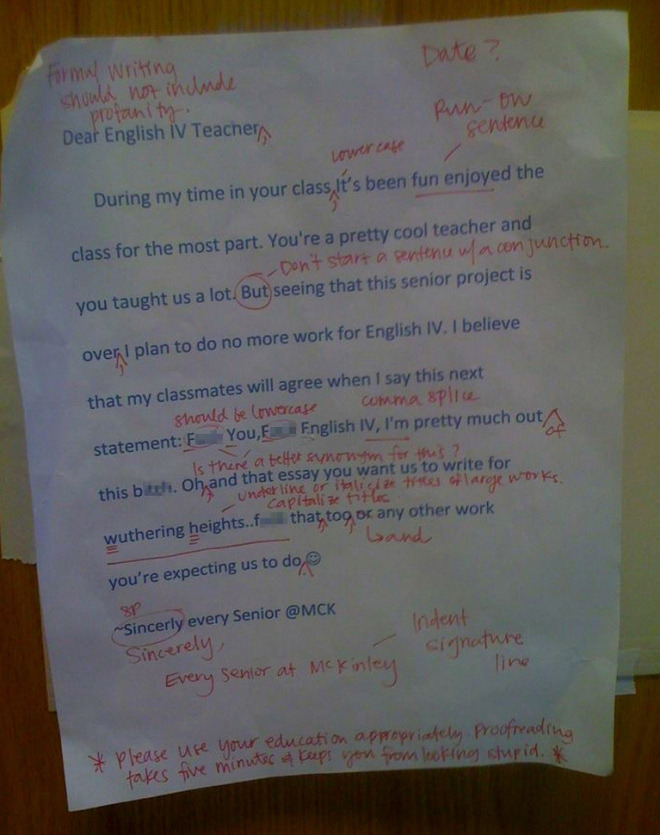 Formal Writing
should not include
profanity.
Date?
Dear English IV Teacher
Run-on
sentence
lowercase
During my time in your class It's been fun enjoyed the
class for the most part. You're a pretty cool teacher and
Don't start a sentence w/ a conjunction.
you taught us a lot. But seeing that this senior project is
over, I plan to do no more work for English IV. I believe
that my classmates will agree when I say this next
should be lowercase
comma splice
statement: F You,F English IV, I'm pretty much out
of
Is there a better synonym for this?
this b . Oh, and that essay you want us to write for
underline or italicize titles of large works.
capitalize titles
wuthering heights..f that, too, or any other work
and
you're expecting us to do ☺
sp
~Sincerly every Senior @MCK
Sincerely,
Every Senior at McKinley
Indent
signature
line
* Please use your education appropriately. Proofreading
takes five minutes & keeps you from looking stupid. *